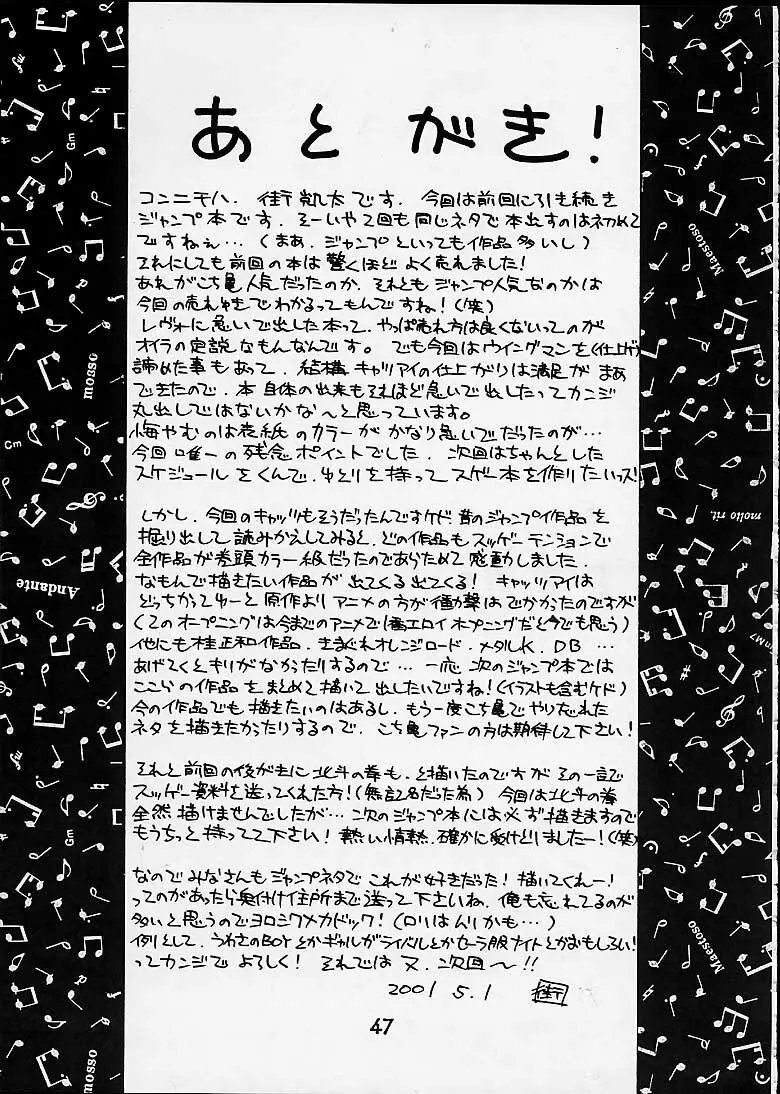 あとがき!
コンニチハ. 街凱太です. 今回は前回に引き続き
ジャンプ本です. そーいや2回も同じネタで本出すのは初めて
ですねぇ…(まあ. ジャンプといっても作品多いし)
それにしても前回の本は驚くほどよく売れました!
あれがこち亀人気だったのか. それともジャンプ人気なのかは
今回の売れ ゆきでわかるってもんですね!(笑)
レヴォに急いで出した本って. やっぱ売れ方は良くないってのが
オイラの定説なもんなんです。でも今回はウイングマンを(仕上げ)
諦めた事もあって. 結構キャッツアイの仕上がりは満足がまあ
できたので. 本自体の出来もそれほど急いで出したってカンジ
丸出しではないかな〜と思っています。
悔やむのは表紙のカラーがかなり急いでだったのが…
今回唯一の残念ポイントでした. 次回はちゃんとした
スケジュールをくんで. ゆとりを持ってスゲー本を作りたいっス!
しかし. 今回のキャッツもそうだったんですケド昔のジャンプ作品を
掘り出して読みかえしてみると. どの作品もスッゲーテンションで
全作品が巻頭カラー級だったのであらためて感動しました.
なもんで描きたい作品が出てくる出てくる! キャッツアイは
どっちかってゆーと原作よりアニメの方が衝撃はでかかたのですが
(2のオープニングは今までのアニメで1番エロイオープニングだと今でも思う)
他にも桂正和作品. きまぐれオレンジロード. メタルK. DB …
あげてくとキリがなかったりするので… 一応次のジャンプ本では
ここらの作品をまとめて描いて出したいですね!(イラストも含むケド)
今の作品でも描きたいのはあるし. もう一度こち亀でやりだれた
ネタを描きたかったりするので. こち亀ファンの方は期待して下さい!
それと前回の後がきに北斗の拳も. と描いたのですがその一言で
スッゲー資料を送ってくれた方!(無記名だった為) 今回は北斗の拳
全然描けませんでしたが… 次のジャンプ本には必ず描きますので
もうちっと待ってて下さい! 熱い情熱. 確かに受けとりましたー!(笑)
なのでみなさんもジャンプネタでこれが好きだった! 描いてくれー!
ってのがあったら奥付け住所まで送って下さいね. 俺も忘れてるのが
多いと思うのでヨロシクメカドック!(ロリはムリかも…)
例として. うわさのBOYとかギャルがライバルとかセーラ服ナイトとかがおもしろい!
ってカンジでよろしく! それでは又. 次回〜!!
2001 5.1 街
47
mosso
Gm
Andante
Maestoso
molto rit.
Cm
Gm
mosso
Maestoso